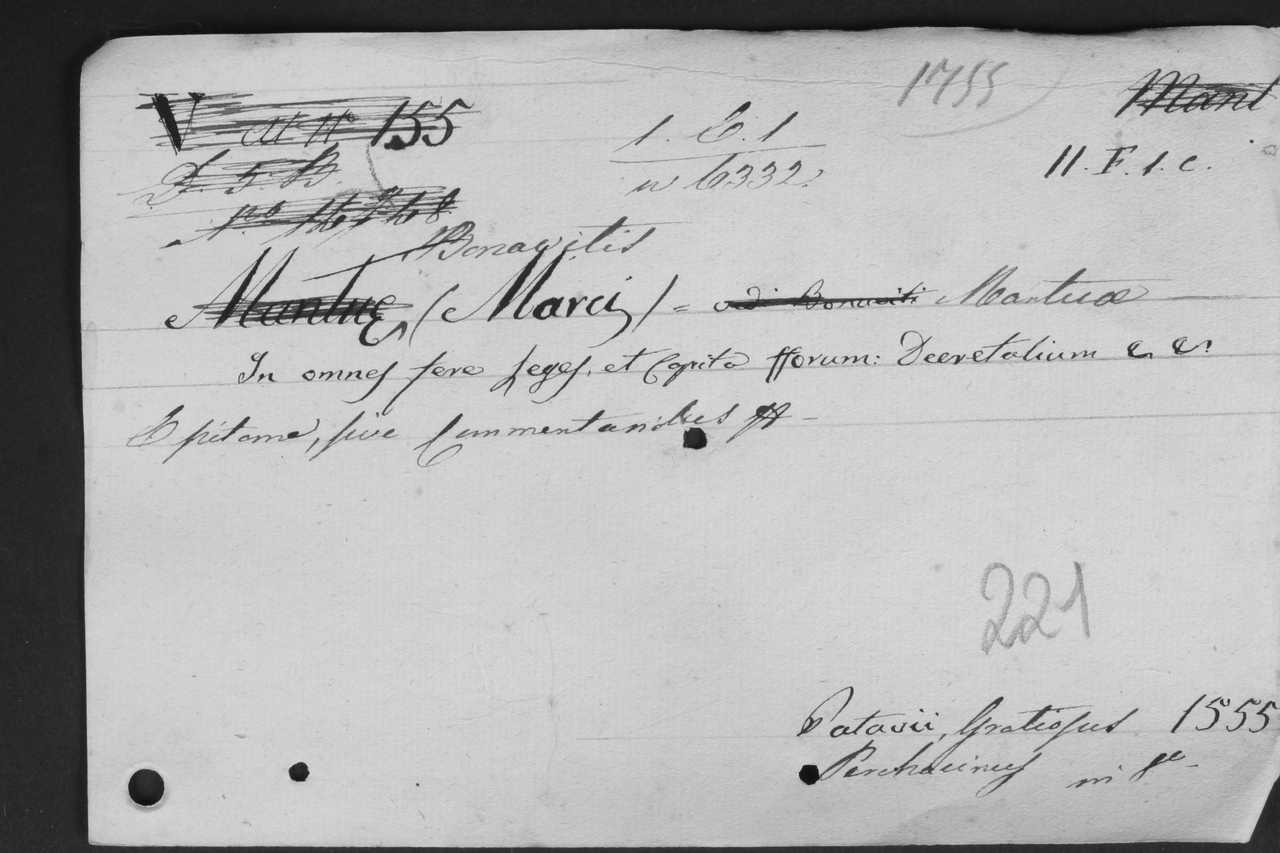 1755
V 155
1. E. 1
Mant
D. 5. B
n 6332.
11. F. 1. c.
Bonavitis
Mantuę (Marci) = Mantuæ
In omnes fere leges, et Capita fforum: Decretalium & &
Epitome, sive Commentariolus
221
Patavii, Gratiosus 1555
Perchacinus in fo